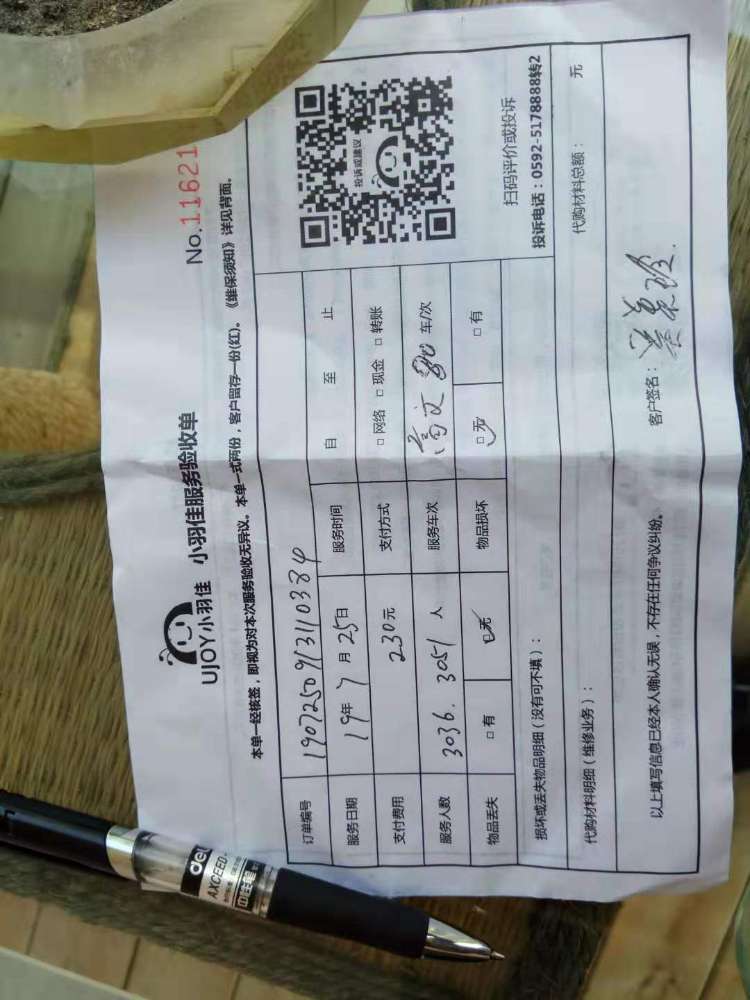 No.11621
UJOY小羽佳 小羽佳服务验收单
本单一经核签，即视为对本次服务验收无异议。本单一式两份，客户留存一份(红)。《维保须知》详见背面。
订单编号 19072509131110384
服务日期 19年7月25日 服务时间 自 至 止
支付费用 230元 支付方式 □网络 □现金 □转账
服务人数 3036. 3051 人 服务车次 车/次
物品丢失 □有 □无 物品损坏 □无 □有
投诉或建议
扫码评价或投诉
投诉电话：0592-5178888转2
损坏或丢失物品明细（没有可不填）：
代购材料明细（维修业务）： 代购材料总额： 元
以上填写信息已经本人确认无误，不存在任何争议纠纷。 客户签名：
deli
AXCEED